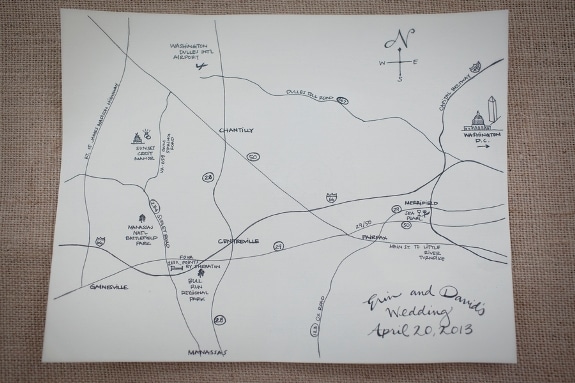 WASHINGTON
DULLES INT'L
AIRPORT
N
W
E
S
DULLES TOLL ROAD
267
CAPITAL BELTWAY
495
WASHINGTON
D.C.
RT. 15 JAMES MADISON HIGHWAY
SUNSET
CREST
MANOR
CHANTILLY
50
28
66
MERRIFIELD
SEA
PEARL
29
50
29/50
FAIRFAX
MAIN ST TO LITTLE
RIVER
TURNPIKE
MANASSAS
NAT'L
BATTLEFIELD
PARK
SUDLEY ROAD
CENTREVILLE
29
66
FOUR
POINTS
BY SHERATON
GAINESVILLE
BULL
RUN
REGIONAL
PARK
28
MANASSAS
123
OX ROAD
Erin and David's
Wedding
April 20, 2013